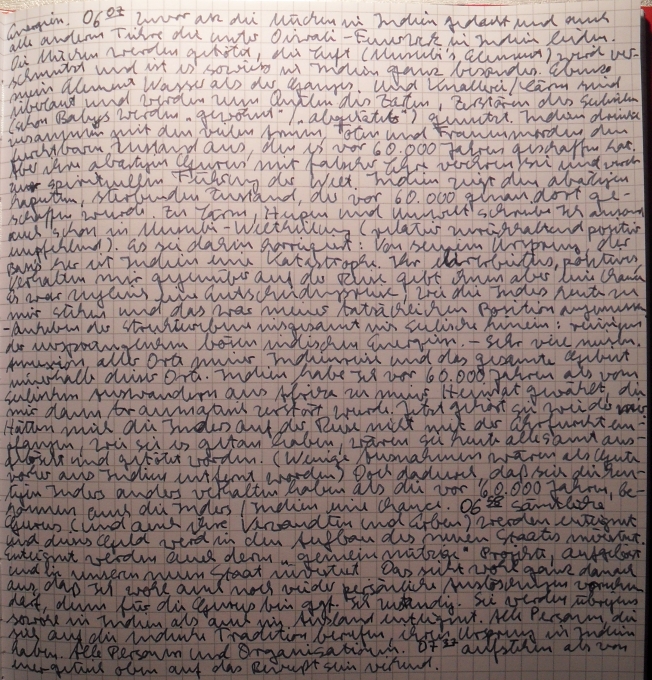 Energien. 06 07 zuvor an die Mücken in Indien gedacht und auch
alle anderen Tiere die unter Diwali-Feuerwerk in Indien leiden.
Die Mücken werden getötet, die Luft ('s Element) wird ver-
schmutzt und ist es sowieso in Indien ganz besonders. Ebenso
mein Element Wasser als der Ganges. Und Knallerei/Lärm sind
überlaut und werden zum des , Zerstören des Seelischen
(schon Babys werden „gewöhnt"/„abgehärtet") genutzt. Indien
zusammen mit den vielen töten und Frauenmorden den
furchtbaren Zustand aus, den es vor 60.000 Jahren geschaffen hat.
Aber ihre abartigen Gurus mit falscher Lehre verehren sie und
zur spirituellen Führung der Welt. Indien zeigt den abartigen
kaputten, sterbenden Zustand, der vor 60.000 genau dort ge-
schaffen wurde. Zu Lärm, Hupen und Umwelt schreibe Ich
auch schon in -Weltheilung (relativ zurückhaltend positiv
empfehlend). Es sei dahin korrigiert: Von seinem Ursprung, der
Basis her ist Indien eine Katastrophe. Ihr , positives
Verhalten mir gegenüber auf der Reise gibt ihnen aber eine Chance
Es war zugleich eine Entscheidungsreise) wie die Indes heute zu
mir stehen und das was meiner tatsächlichen Position angemessen
- der Strukturebene insgesamt ins Seelische hinein: reinigen
der ursprünglichen bösen indischen Energien. - Sehr viele
Annexion aller Orte meiner Indienreise und das gesamte Gebiet
innerhalb dieser Orte. Indien habe Ich vor 60.000 Jahren als vom
Seelischen Auswandern aus Afrika zu meiner Heimat gewählt, die
mir dann traumatisch zerstört wurde. Jetzt gehört sie wieder mir
Hätten mich die Indes auf der Reise nicht mit der Ehrfurcht em-
pfangen, wie sie es getan haben, wären sie heute allesamt aus-
gelöscht und getötet worden. (Wenige Ausnahmen wären als Gute
vorher aus Indien entfernt worden) Doch dadurch, daß sich die heu-
tigen Indes anders verhalten haben als die vor 60.000 Jahren, be-
kommen auch die Indes/Indien eine Chance. 06 58 Sämtliche
Gurus (und auch ihre Verwandten und Erben) werden enteignet
und deren Geld wird in den Aufbau des neuen Staates investiert.
Enteignet werden auch deren „gemeinnützige" Projekte, aufgelöst
und in unseren neuen Staat investiert. Das sieht wohl ganz danach
aus, daß Ich wohl auch noch viele persönliche Auslöschungen
, denn für die Gurus bin ggf. Ich zuständig. Sie werden übrigens
sowohl in Indien als auch im Ausland enteignet. Alle Personen, die
sich auf die indische Tradition berufen, ihren Ursprung in Indien
haben. Alle Personen und Organisationen. 07 aufstehen als von
energetisch oben auf das Bewußtsein